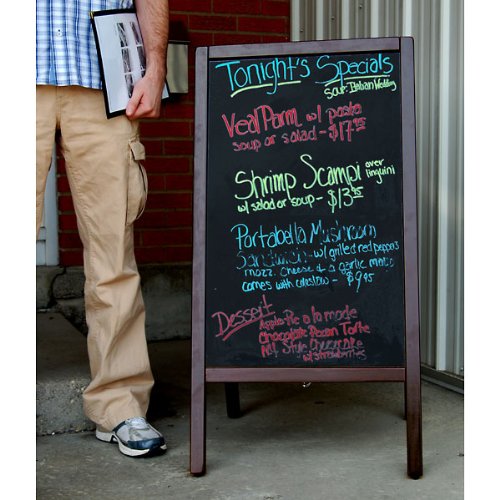 Tonight's Specials
Soup: Italian Wedding
Veal Parm w/ pasta
soup or salad - $17.95
Shrimp Scampi over linguini
w/ salad or soup - $13.95
Portabella Mushroom
Sandwich - w/ grilled red peppers
mozz. cheese & a garlic
comes with coleslaw - $9.95
Dessert
Apple Pie a la mode
Chocolate Pecan Torte
N.Y. Style Cheesecake
w/ strawberries